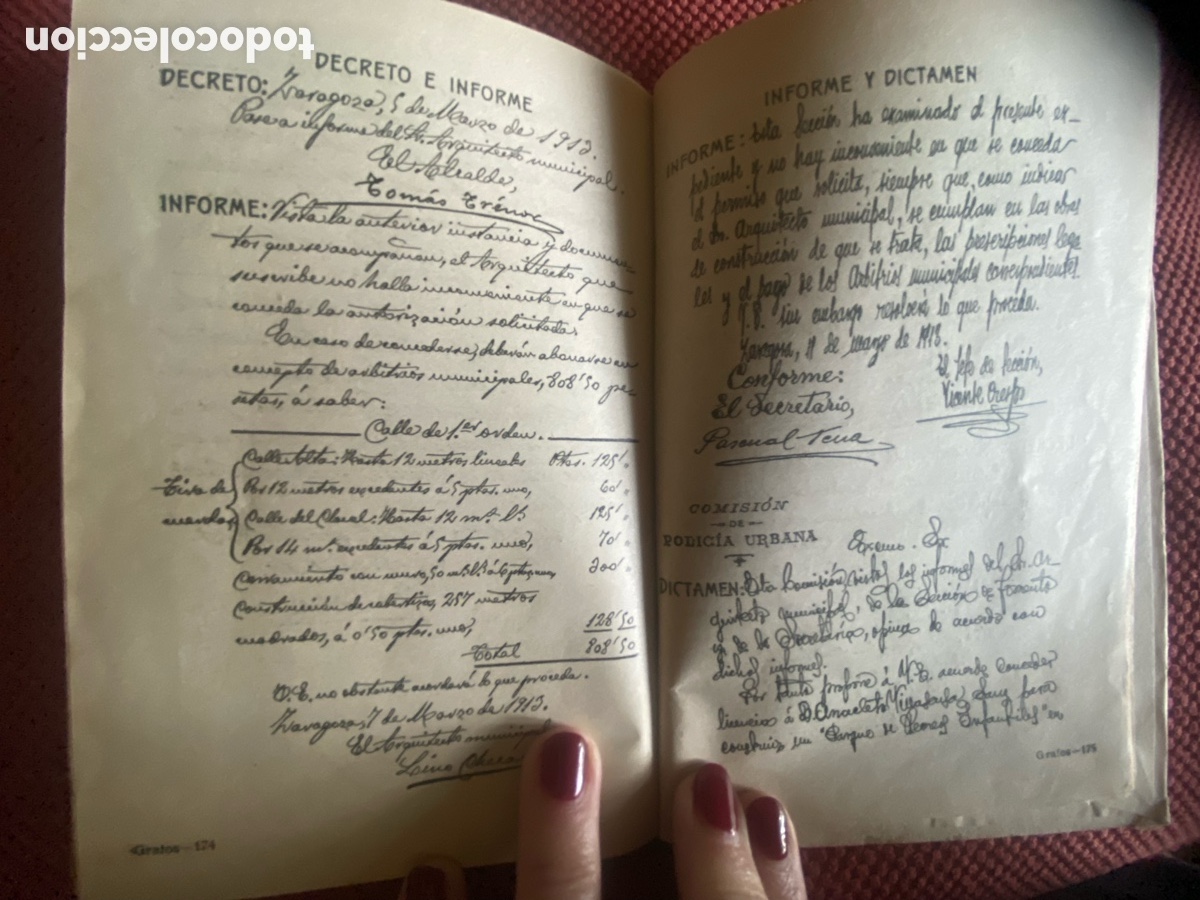 todocoleccion
DECRETO E INFORME
DECRETO: Zaragoza, 5 de Marzo de 1913.
Pase a informe del Sr. Arquitecto municipal.
El Alcalde,
Tomás Trénor
INFORME: Vista la anterior instancia y documen-
tos que se acompañan, el Arquitecto que
suscribe no halla inconveniente en que se
conceda la autorización solicitada.
En caso de concederse, deberán abonarse en
concepto de arbitrios municipales, 808'50 pe-
setas, á saber:
Calle de 1.er orden.
Calle Alta: Hasta 12 metros lineales Ptas. 125 ' "
Tira de
cuerdas
Por 12 metros excedentes á 5 ptas. uno, 60 ' "
Calle del Clavel: Hasta 12 m.s l.s 125 ' "
Por 14 m.s excedentes á 5 ptas. uno, 70 ' "
Cerramiento con muro, 50 m.s l.s á 6 ptas. uno, 300 ' "
Construcción de cobertizos, 257 metros
cuadrados, á 0'50 ptas. uno, 128'50
Total 808'50
V. E. no obstante acordará lo que proceda.
Zaragoza, 7 de Marzo de 1913.
El Arquitecto municipal
Lino
Gratos—174
INFORME Y DICTAMEN
INFORME: Esta Sección ha examinado el presente ex-
pediente y no hay inconveniente en que se conceda
el permiso que solicita, siempre que, como indica
el Sr. Arquitecto municipal, se cumplan en las obras
de construcción de que se trata, las prescripciones lega-
les y el pago de los Arbitrios municipales correspondientes.
V. E. sin embargo resolverá lo que proceda.
Zaragoza, 11 de marzo de 1913.
El Jefe de Sección,
Vicente Crespo
Conforme:
El Secretario,
Pascual Tena
COMISIÓN
DE
POLICÍA URBANA
Excmo. Sr.
DICTAMEN: Esta Comisión, vistos los informes del Sr. Ar-
quitecto municipal, de la Sección de Fomento
y de la Secretaría, opina de acuerdo con
dichos informes.
Por tanto propone á V. E. acuerde conceder
licencia á D. Anacleto para
construir un "Parque de Recreos Infantiles" en
Gratos—175